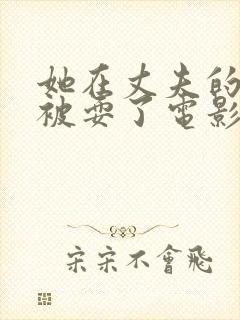 她在丈夫的
被耍了電影
宋宋不會飛